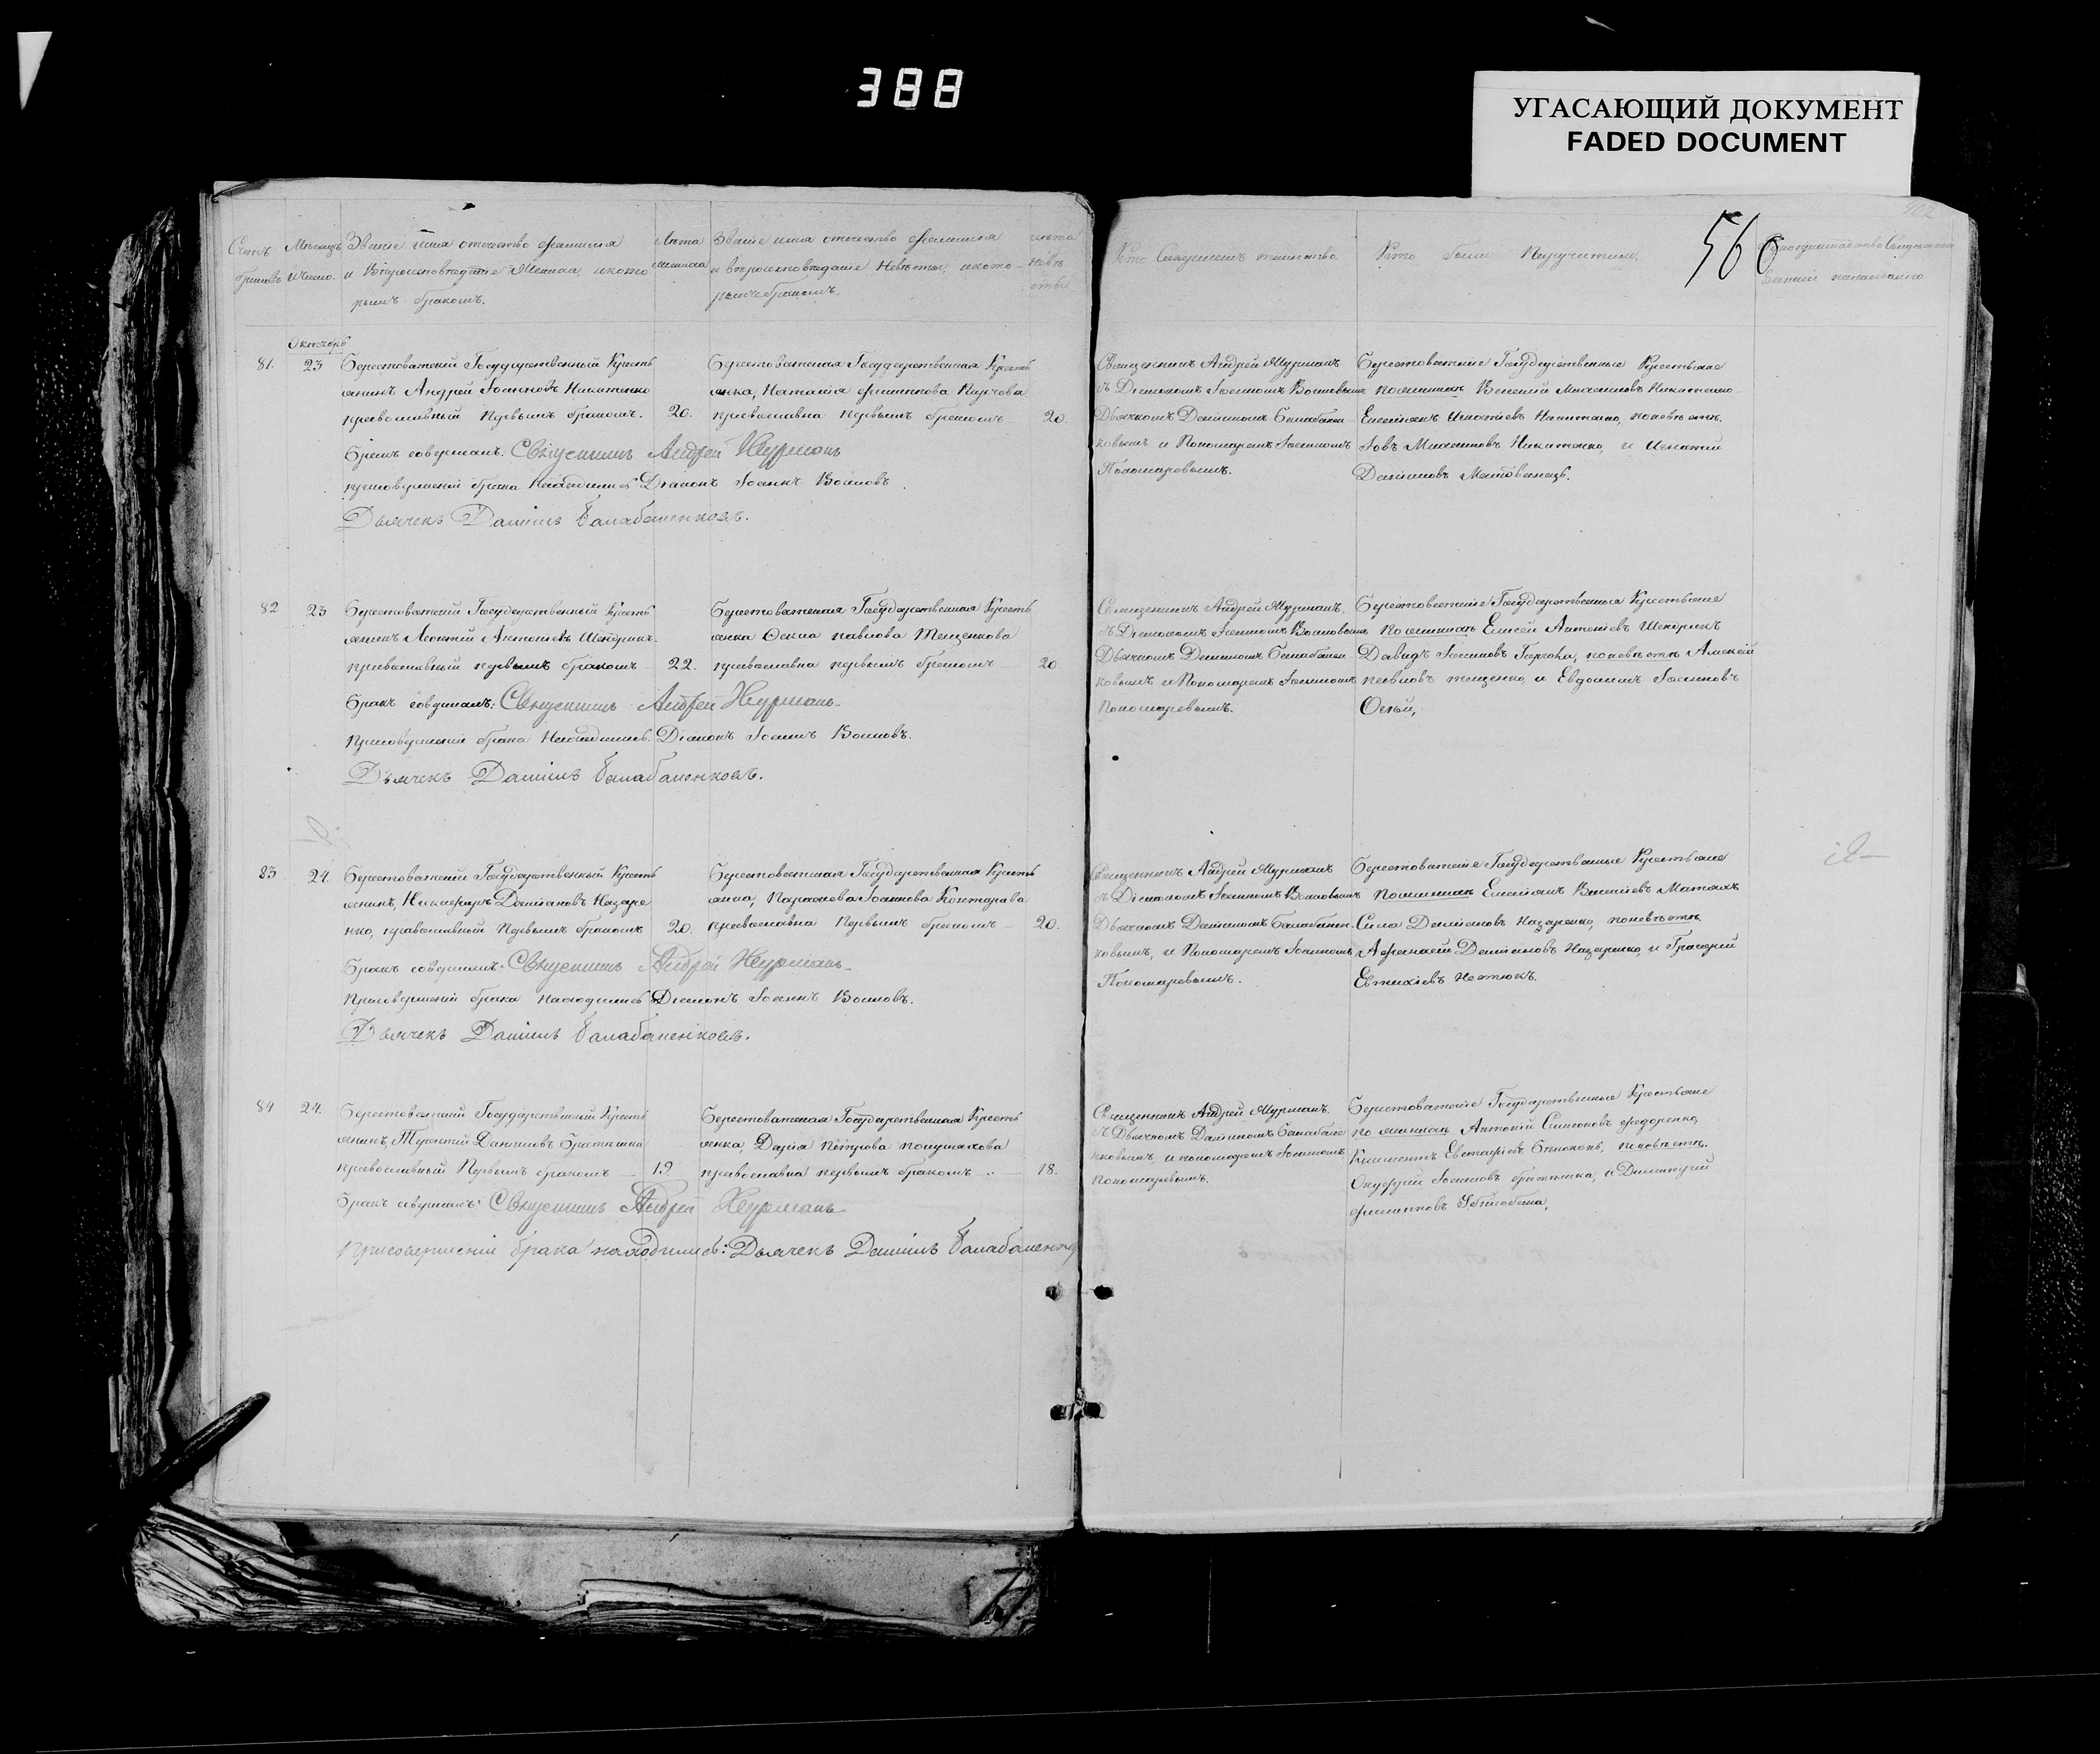 388
УГАСАЮЩИЙ ДОКУМЕНТ
FADED DOCUMENT
560
Счетъ браковъ
Мѣсяцъ и число.
Званіе имя отечество фамилія
и вѣроисповѣданіе жениха, и кото
рымъ бракомъ.
Лѣта жениха
Званіе имя отечество фамилія
и вѣроисповѣданіе Невѣсты, и кото-
рымъ бракомъ.
лѣта невѣ сты
Кто Совершалъ таинство.
Кто были Поручители.
Октябрь
81.
23
Берестоватскій Государственный Кресть
янинъ Андрей Іоанновъ Никитенко
православный Первымъ бракомъ.
20.
Берестоватская Государственная Кресть
янка, Наталія Филиппова
православна первымъ бракомъ
20.
Священникъ Андрей Мурманъ
съ Діакономъ Іоанномъ Воиновымъ
Дьячкомъ Даніиломъ Балабанен
ковымъ и Пономаремъ Іоанномъ
Пономаревымъ.
Берестоватскіе Государственные Крестьяне
по женихѣ Василій Михаиловъ Никитенко
Емеліянъ Игнатіевъ Никитенко, по невѣстѣ.
Іовъ Михаиловъ Никитенко, и Игнатій
Даніиловъ
Бракъ совершалъ: Священникъ Андрей Мурманъ
При совершеніи брака Находились Діаконъ Іоаннъ Воиновъ
Дьячекъ Даніилъ Балабаненковъ.
82
23
Берестоватскій Государственный Кресть
янинъ Леонтій Антоніевъ Шендрикъ.
православный первымъ бракомъ
22.
Берестоватская Государственная Кресть
янка Павлова Тещенкова
православна первымъ бракомъ
20.
Священникъ Андрей Мурманъ.
съ Діакономъ Іоанномъ Воиновымъ
Дьячкомъ Даніиломъ Балабанен
ковымъ и Пономаремъ Іоанномъ
Пономаревымъ.
Берестоватскіе Государственные Крестьяне
по женихѣ Елисей Антоніевъ Шендрикъ
Давидъ Іоанновъ, по невѣстѣ Алексій
Павловъ Тещенко, и Евдокимъ Іоанновъ
Бракъ совершалъ: Священникъ Андрей Мурманъ
При совершеніи брака Находились. Діаконъ Іоаннъ Воиновъ.
Дьячекъ Даніилъ Балабаненковъ.
83
24.
Берестоватскій Государственный Кресть
янинъ, Никифоръ Даміановъ Назаре
нко, православный Первымъ бракомъ
20.
Берестоватская Государственная Кресть
янка, Параскева Іоаннова
православна Первымъ бракомъ
20.
Священникъ Андрей Мурманъ
съ Діакономъ Іоанномъ Воиновымъ
Дьячкомъ Даніиломъ Балабанен.
ковымъ, и Пономаремъ Іоанномъ
Пономаревымъ.
Берестоватскіе Государственные Крестьяне
по женихѣ Емеліянъ Василіевъ
Сила Даміановъ Назаренко, по невѣстѣ
Афанасій Даміановъ Назаренко, и Григорій
Евтихіевъ
Бракъ совершалъ: Священникъ Андрей Мурманъ
При совершеніи брака находились Діаконъ Іоаннъ Воиновъ.
Дьячекъ Даніилъ Балабаненковъ.
84
24.
Берестоватскій Государственный Кресть
янинъ, Терентій Даниловъ
православный Первымъ бракомъ
19.
Берестоватская Государственная Кресть
янка, Дарія Петрова
православна первымъ бракомъ
18.
Священникъ Андрей Мурманъ.
съ Дьячкомъ Даніиломъ Балабане
нковымъ, и пономаремъ Іоанномъ
пономаревымъ.
Берестоватскіе Государственные Крестьяне
по женихѣ Антоній Симоновъ Федоренко,
Климентъ Евстафіевъ, по невѣстѣ.
Онуфрій Іоанновъ, и Димитрій
Филипповъ
Бракъ совершалъ: Священникъ Андрей Мурманъ
При совершеніи брака находились: Дьячекъ Даніилъ Балабаненковъ